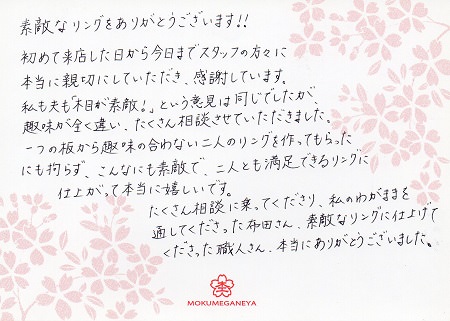 素敵なリングをありがとうございます!!
初めて来店した日から今日までスタッフの方々に
本当に親切にしていただき、感謝しています。
私も夫も「木目が素敵。」という意見は同じでしたが、
趣味が全く違い、たくさん相談させていただきました。
一つの板から趣味の合わない二人のリングを作ってもらった
にも拘らず、こんなにも素敵で、二人とも満足できるリングに
仕上がって本当に嬉しいです。
たくさん相談に乗ってくださり、私のわがままを
通してくださった布田さん、素敵なリングに仕上げて
くださった職人さん、本当にありがとうございました。
MOKUMEGANEYA